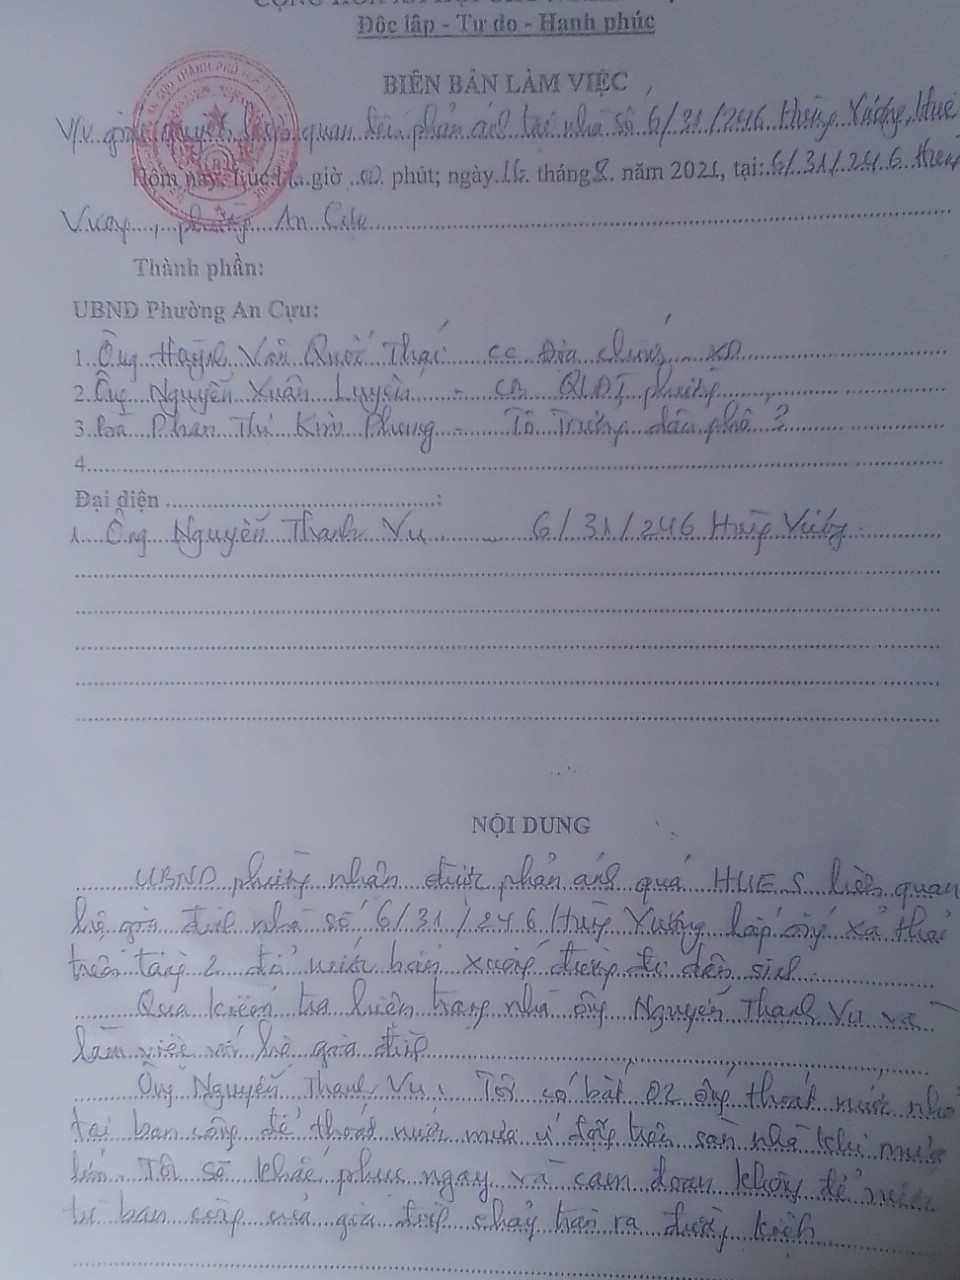 Độc lập - Tự do - Hạnh phúc
BIÊN BẢN LÀM VIỆC
V/v giải quyết liên quan đến phản ánh tại nhà số 6/31/246 Hùng Vương, Huế
Hôm nay, lúc giờ 00 phút; ngày 16 tháng 8 năm 2021, tại: 6/31/246 Hùng
Vương, phường An Cựu
Thành phần:
UBND Phường An Cựu:
1. Ông Huỳnh Văn Quốc Thái CC Địa chính - XD
2. Ông Nguyễn Xuân Luyện - CB QLĐT phường
3. Bà Phan Thị Kim Phụng - Tổ Trưởng dân phố 2
4
Đại diện :
1. Ông Nguyễn Thanh Vu - 6/31/246 Hùng Vương
NỘI DUNG
UBND phường nhận được phản ánh qua HUE S liên quan
hộ gia đình nhà số 6/31/246 Hùng Vương lắp ống xả thải
trên tầng 2 đổ nước bẩn xuống đường đi dân sinh
Qua kiểm tra hiện trạng nhà ông Nguyễn Thanh Vu và
làm việc với hộ gia đình
Ông Nguyễn Thanh Vu: Tôi có bắt 02 ống thoát nước nhỏ
tại ban công để thoát nước mưa ứ đọng trên sàn nhà khi mưa
lớn. Tôi sẽ khắc phục ngay và cam đoan không để nước
từ ban công của gia đình chảy tràn ra đường kiệt